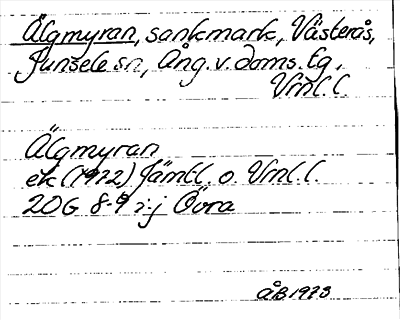 Älgmyran, sankmark, Västerås,
Junsele sn, Ång. v. doms. tg,
Vrnl. l.
Älgmyran
ek (1972) Jämtl. o. Vrnl. l.
20G 8-9 i-j Övra
ÅB 1973